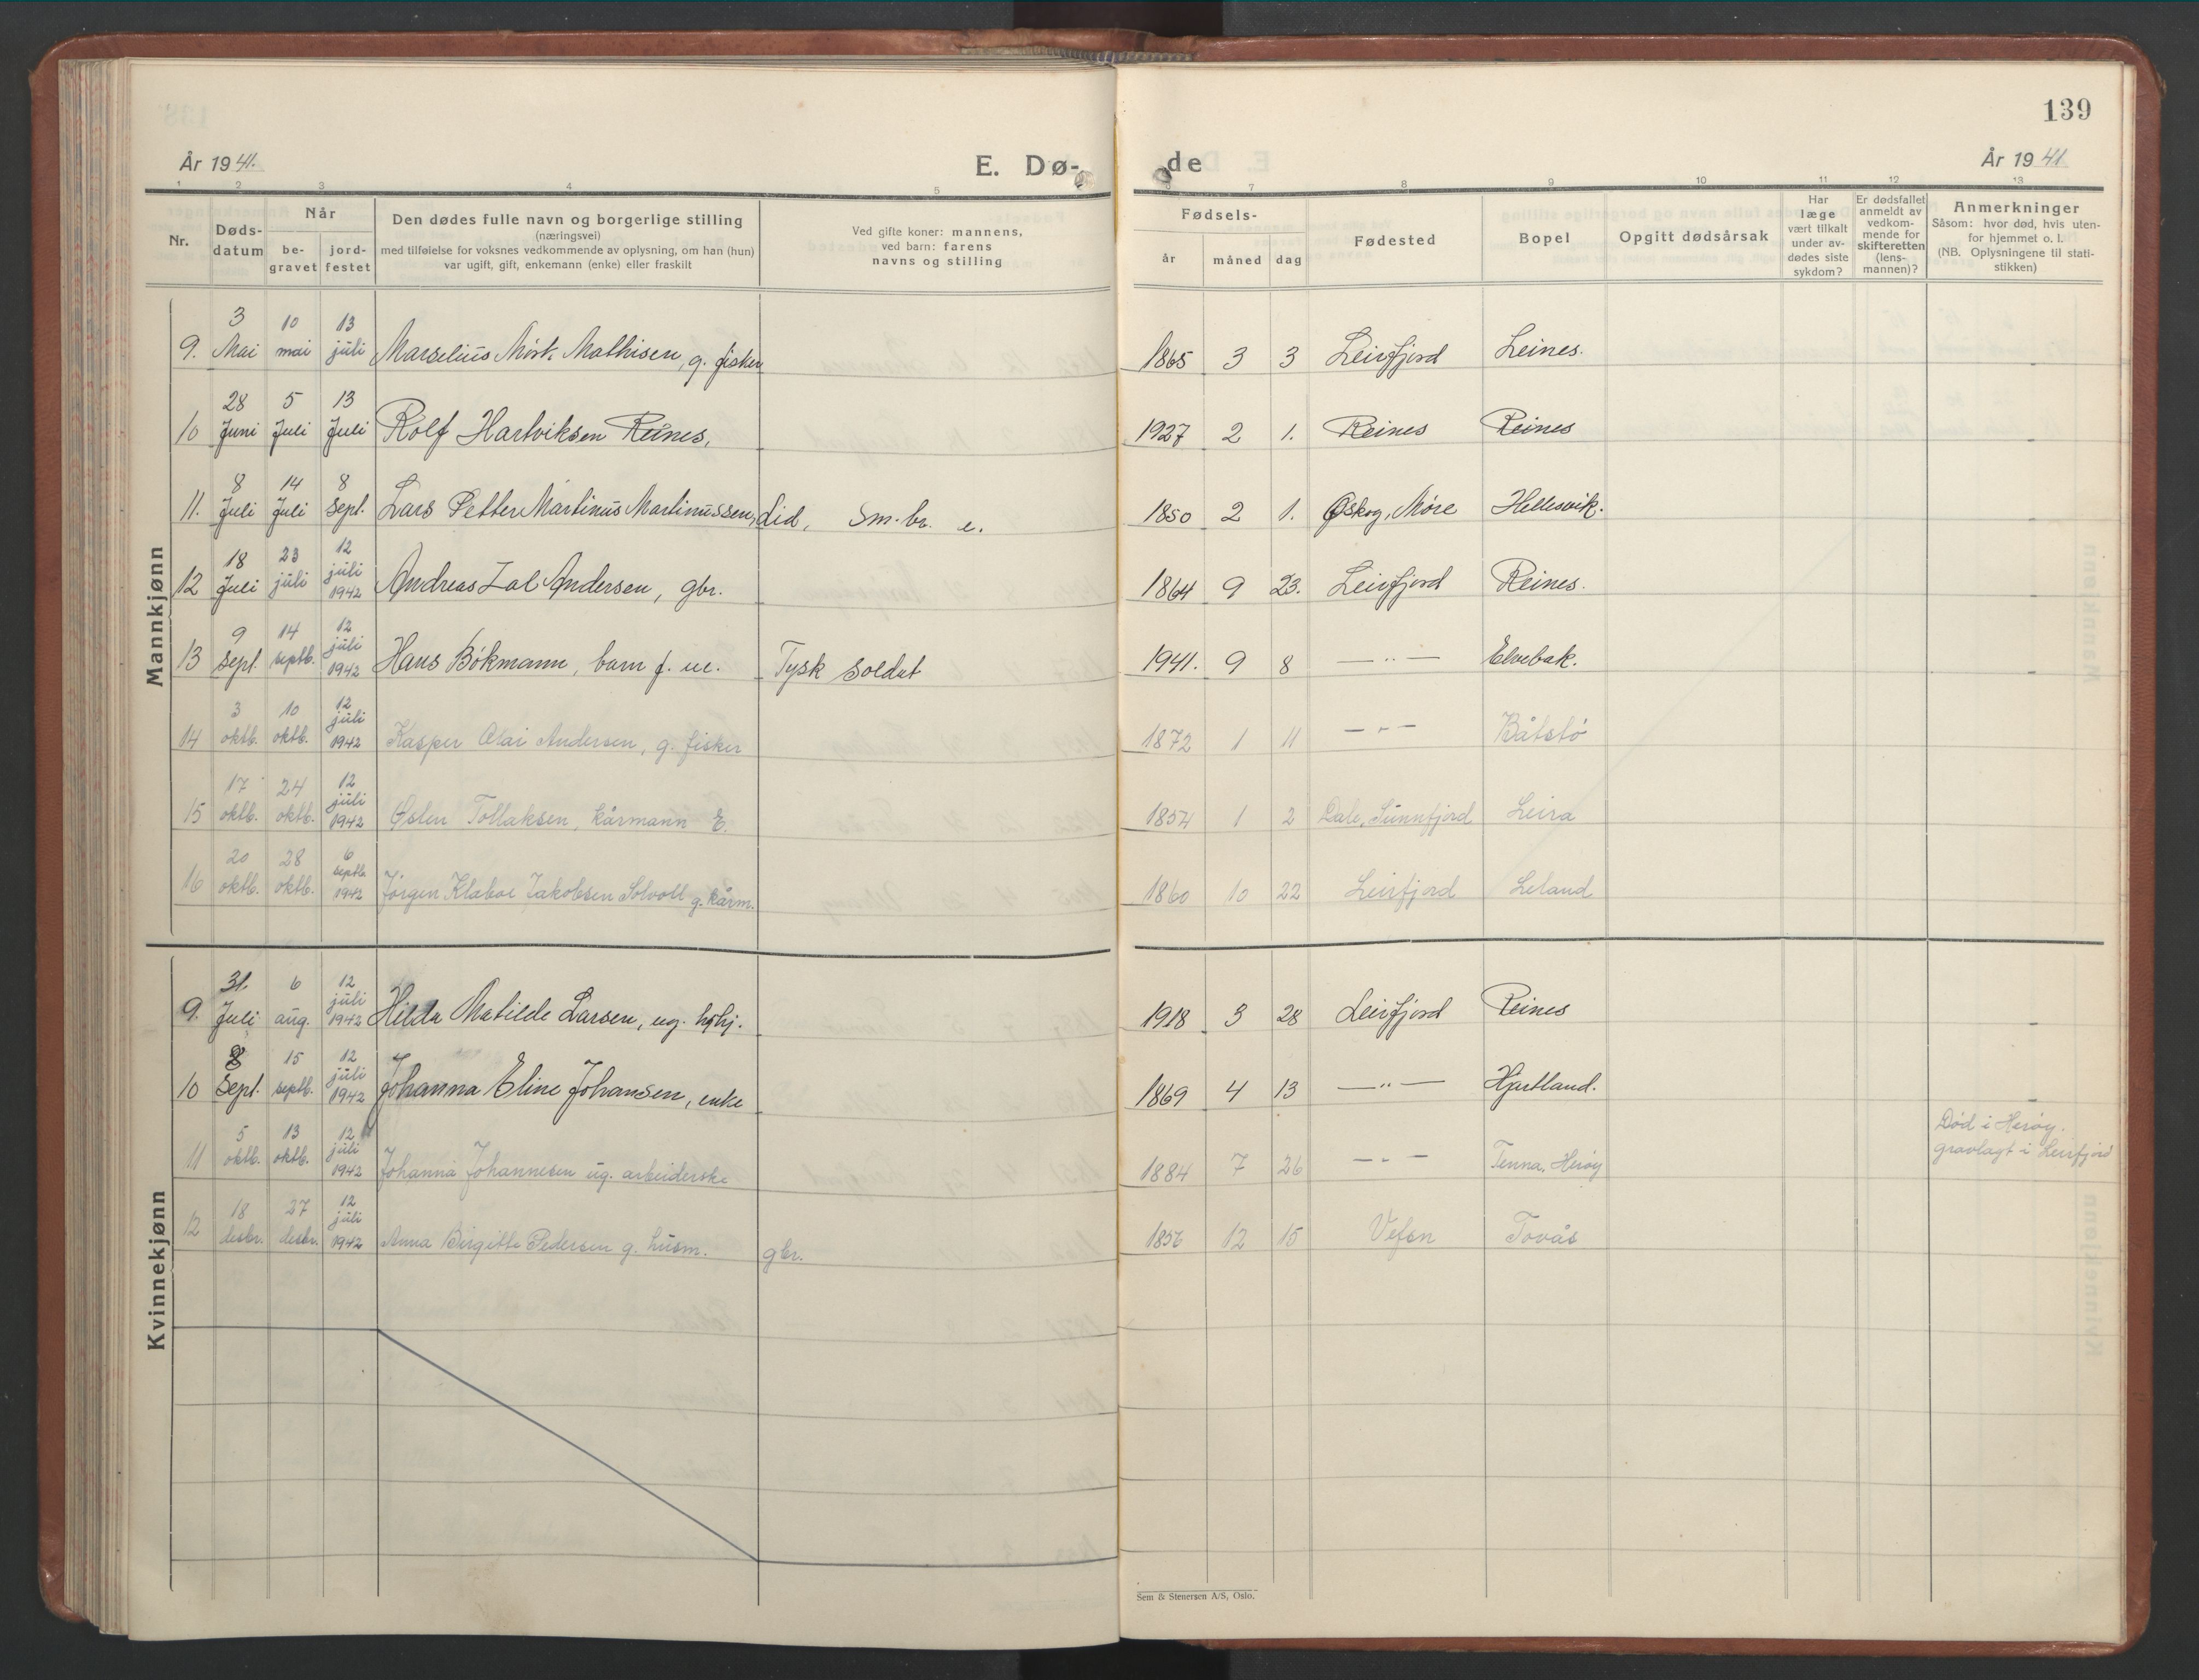 139
År 1941.
E. Dø-
de
År 1941
1 2 3 4 5 6 7 8 9 10 11 12 13
Nr.
Døds-
datum
Når
be-
gravet
jord-
festet
Den dødes fulle navn og borgerlige stilling
(næringsvei)
med tilføielse for voksnes vedkommende av oplysning, om han (hun)
var ugift, gift, enkemann (enke) eller fraskilt
Ved gifte koner: mannens,
ved barn: farens
navns og stilling
Fødsels-
år
måned
dag
Fødested
Bopel
Opgitt dødsårsak
Har
læge
vært tilkalt
under av-
dødes siste
sykdom?
Er dødsfallet
anmeldt av
vedkom-
mende for
skifteretten
(lens-
mannen)?
Anmerkninger
Såsom: hvor død, hvis uten-
for hjemmet o. l.
(NB. Oplysningene til stati-
stikken)
Mannkjønn
9. 3 Mai 10 mai 13 juli Marselius Mørk Mathisen, g. fisker 1865 3 3 Leirfjord Leines.
10 28 Juni 5 Juli 13 Juli Rolf Hartviksen Reines, 1927 2 1. Reines Reines
11. 8 Juli 14 Juli 8 Sept. Lars Petter Martinus Martinussen, Lid, Sm.br. e. 1850 2 1. Ørskog, Møre Hellesvik.
12 18 Juli 23 juli 12 juli 1942 Andreas Zal Andersen, gbr. 1864 9 23. Leirfjord Reines.
13 9 sept. 14 septb. 12 juli 1942 Hans Bökmann, barn f. u.e. Tysk soldat 1941. 9 8 — " — Elvebak.
14 3 oktb. 10 oktb. 12 juli 1942 Kasper Olai Andersen, g. fisker 1872 1 11 — " — Båtstø
15 17 oktb. 24 oktb. 12 juli 1942 Østen Tollaksen, kårmann E. 1854 1 2 Dale, Sunnfjord Leira
16 20 oktb. 28 oktb. 6 septb. 1942 Jørgen Klaboe Jakobsen Solvoll g. kårm. 1860 10 22 Leirfjord Leland
Kvinnekjønn
9. 31. Juli 6 aug. 12 juli 1942 Hilda Matilde Larsen, ug. hjhj. 1918 3 28 Leirfjord Reines
10 8 Sept. 15 septb. 12 juli 1942 Johanna Eline Johansen, enke 1869 4 13 — " — Hjartland.
11 5 oktb. 13 oktb. 12 juli 1942 Johanna Johannesen ug. arbeiderske 1884 7 26 — " — Tenna, Herøy Død i Herøy.
gravlagt i Leirfjord
12 18 desbr. 27 desbr. 12 juli 1942 Anna Birgitte Pedersen g. husm. gbr. 1856 12 15 Vefsn Tovås
Sem & Stenersen A/S, Oslo.